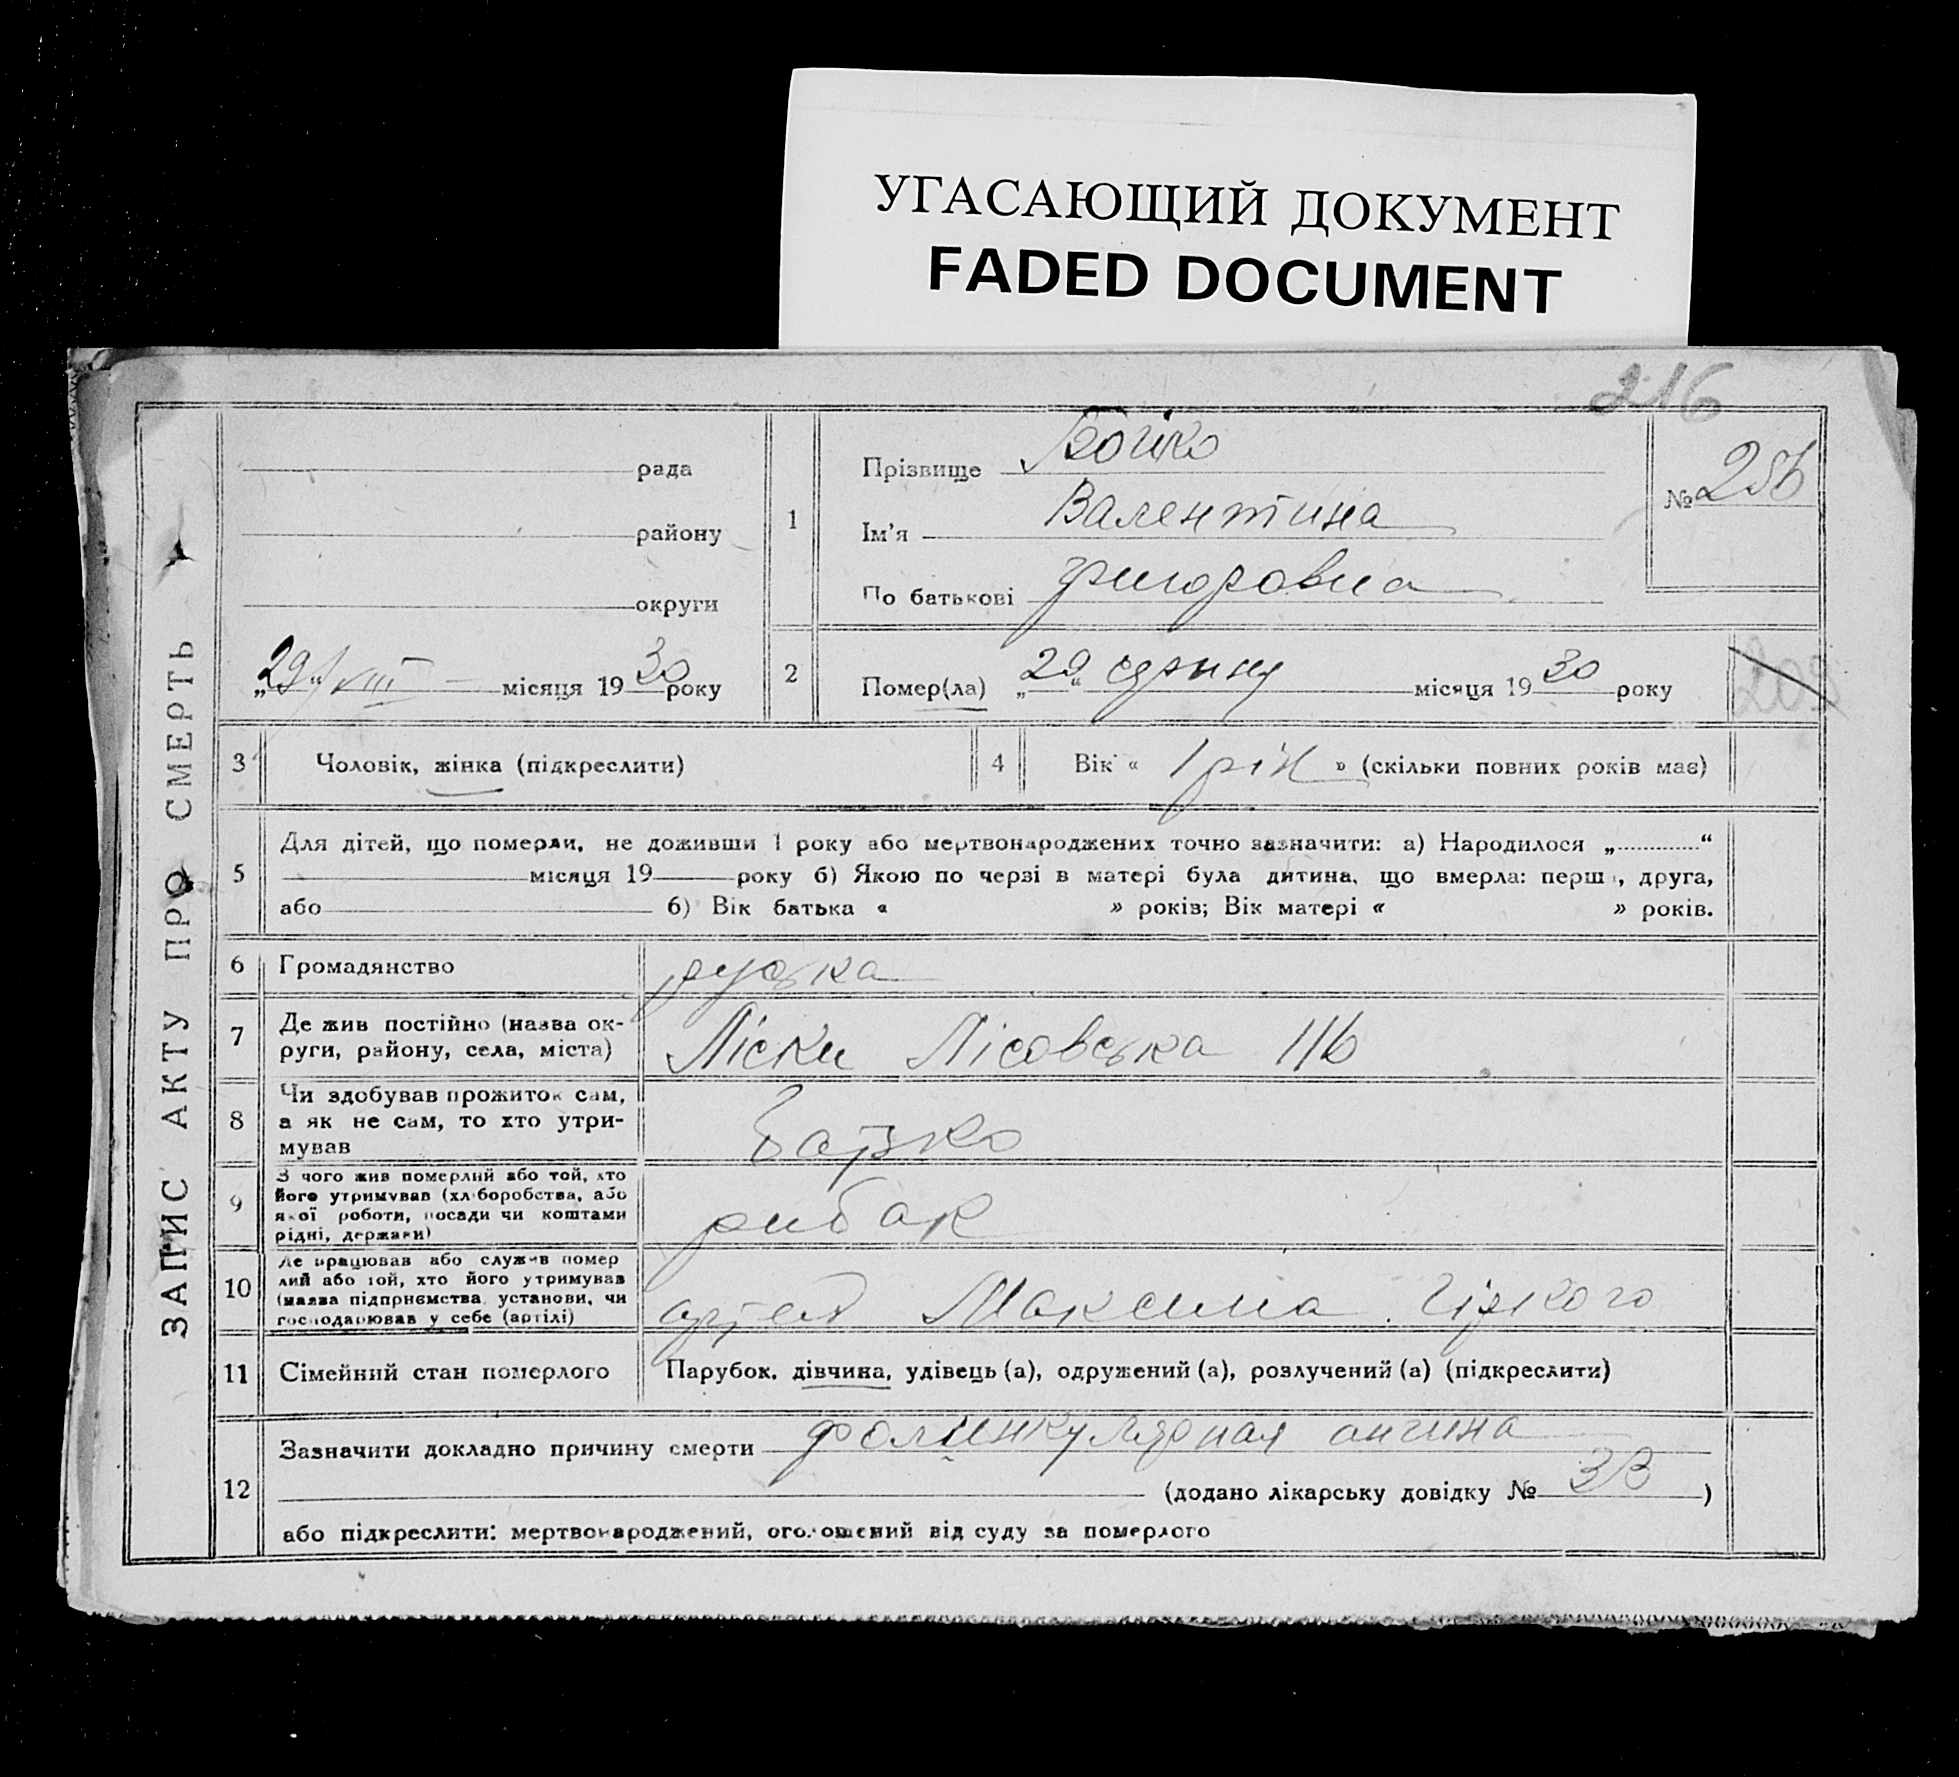 УГАСАЮЩИЙ ДОКУМЕНТ
FADED DOCUMENT
216
ЗАПИС АКТУ ПРО СМЕРТЬ
рада
району
округи
„29“ VIII місяця 1930 року
1
Прізвище Бойко
Ім'я Валентина
По батькові Григоровна
№ 256
2
Помер(ла) „29“ серпня місяця 1930 року
202
3 Чоловік, жінка (підкреслити)
4 Вік « 1 рік » (скільки повних років має)
5
Для дітей, що померли, не доживши 1 року або мертвонароджених точно зазначити: а) Народилося „ “
місяця 19 року б) Якою по черзі в матері була дитина, що вмерла: перша, друга,
або б) Вік батька « » років; Вік матері « » років.
6 Громадянство руська
7 Де жив постійно (назва ок-
руги, району, села, міста) Ліски Лісовська 116
8 Чи здобував прожиток сам,
а як не сам, то хто утри-
мував батько
9 З чого жив померлий або той, хто
його утримував (хліборобства, або
якої роботи, посади чи коштами
рідні, держави) рибак
10 Де працював або служив помер
лий або той, хто його утримував
(назва підприємства, установи, чи
господарював у себе (артілі) артел Максима Гіркого
11 Сімейний стан померлого Парубок, дівчина, удівець (а), одружений (а), розлучений (а) (підкреслити)
12
Зазначити докладно причину смерти фолинкулярная ангина
(додано лікарську довідку № 33 )
або підкреслити: мертвонароджений, оголошений від суду за померлого